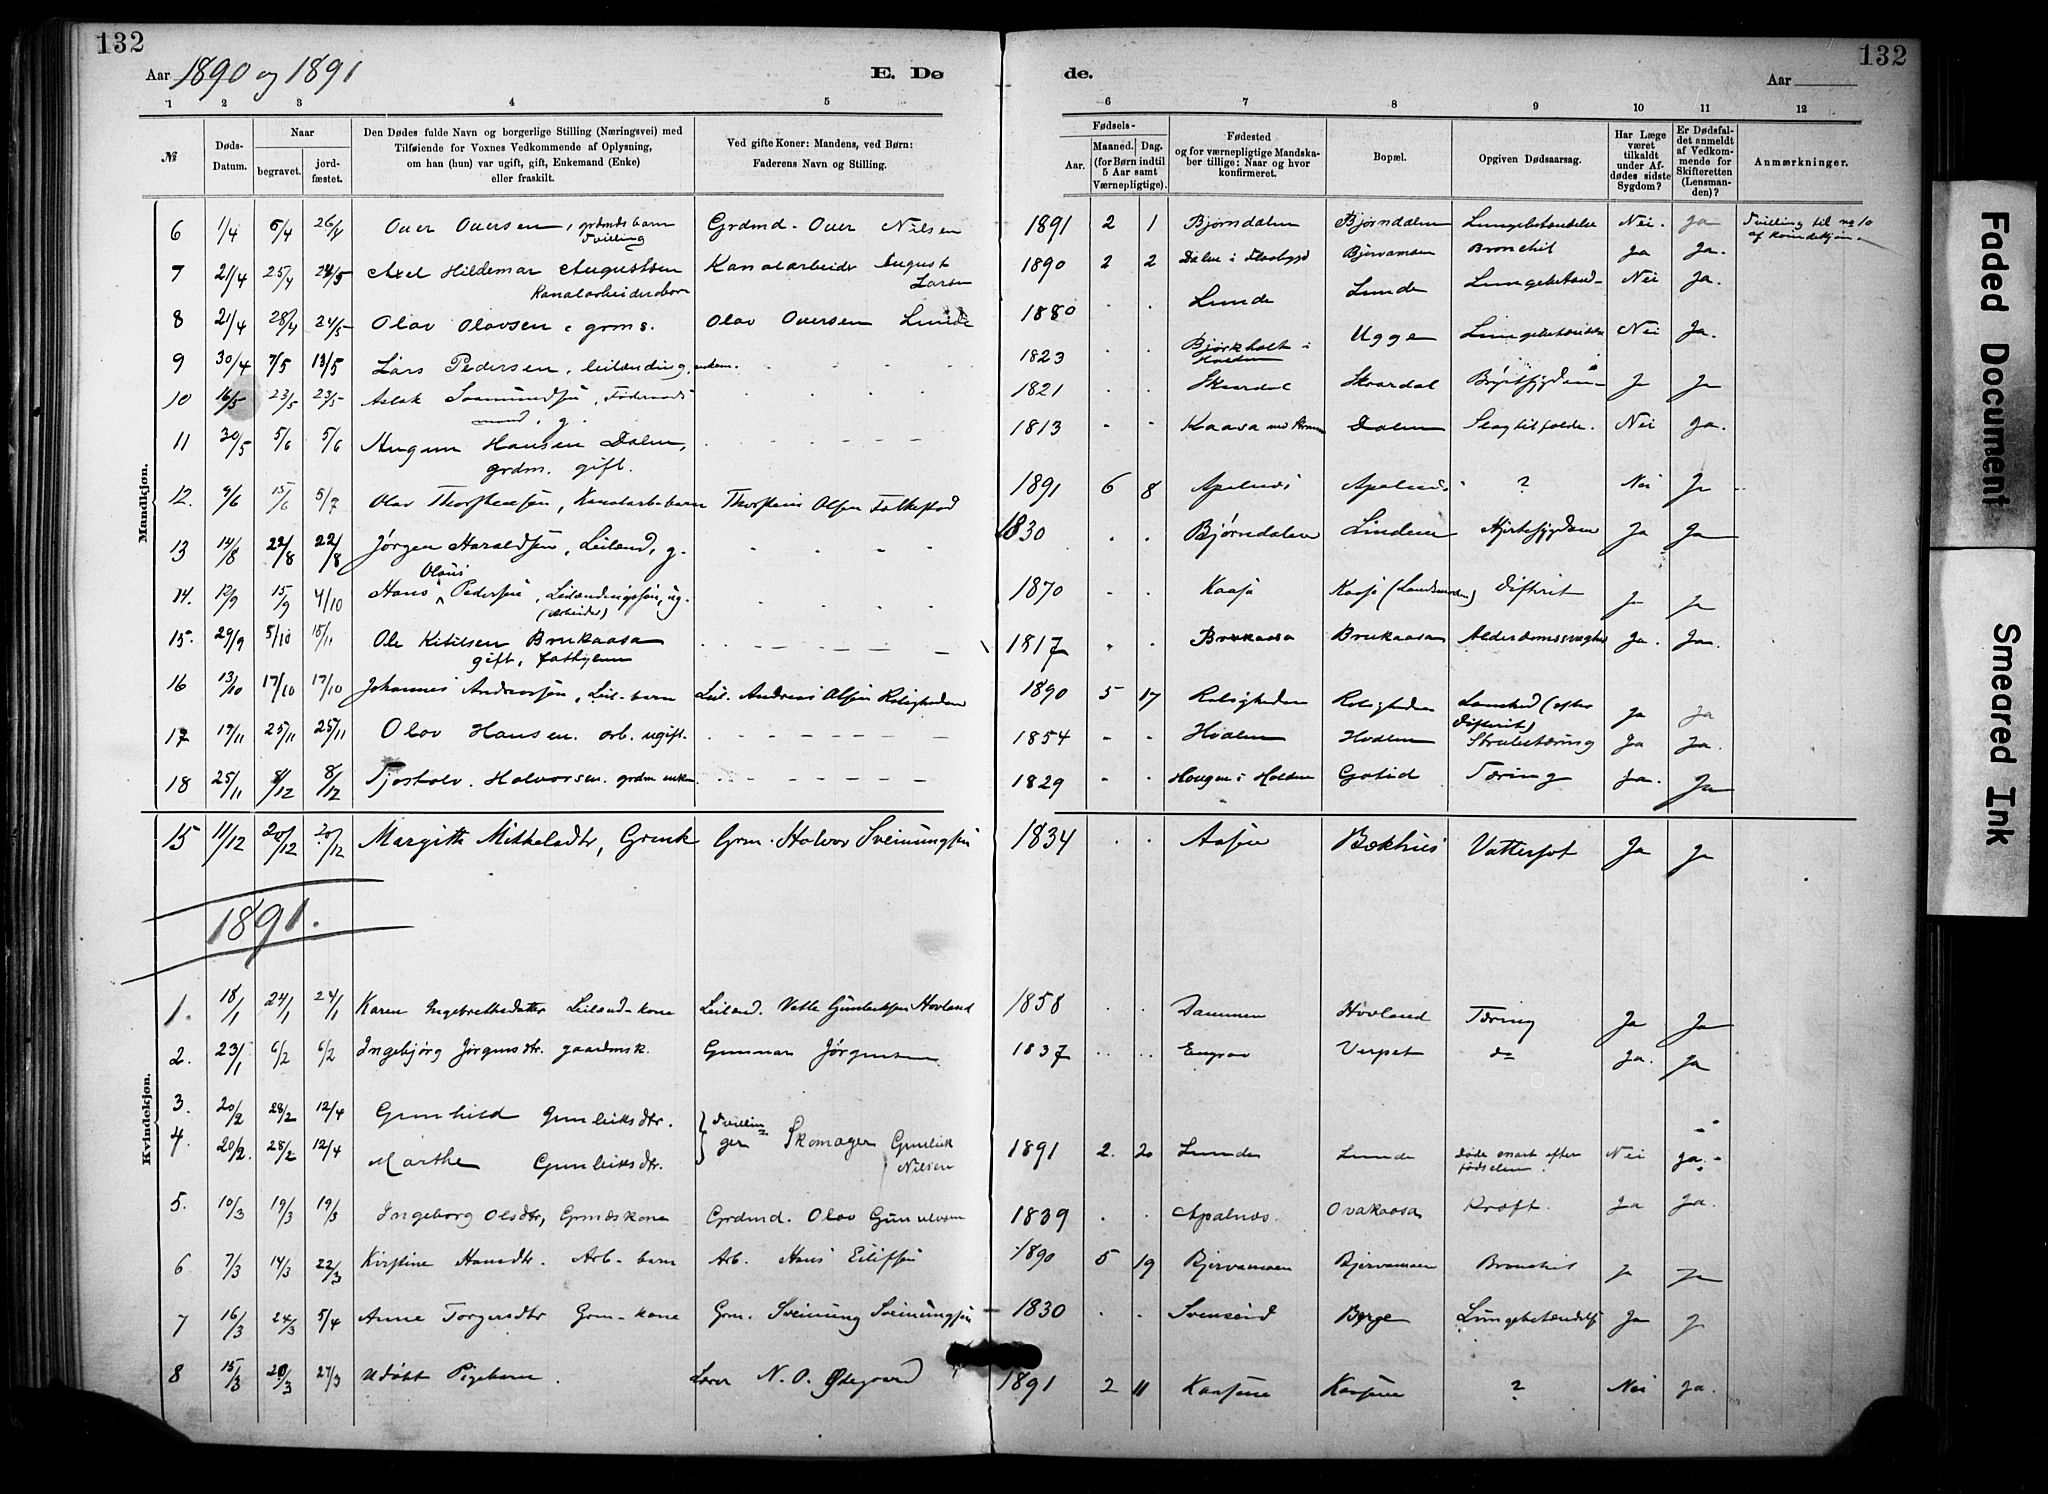 132
132
Aar 1890 og 1891
E. Dø
de.
Aar
1 2 3 4 5 6 7 8 9 10 11 12
№
Døds-Datum.
Naar
begravet.
jordfæstet.
Den Dødes fulde Navn og borgerlige Stilling (Næringsvei) med
Tilføiende for Voxnes Vedkommende af Oplysning,
om han (hun) var ugift, gift, Enkemand (Enke)
eller fraskilt.
Ved gifte Koner: Mandens, ved Børn:
Faderens Navn og Stilling.
Fødsels-
Aar.
Maaned. Dag.
(for Børn indtil
5 Aar samt
Værnepligtige).
Fødested
og for værnepligtige Mandskaber tillige: Naar og hvor
konfirmeret.
Bopæl.
Opgiven Dødsaarsag.
Har Læge
været
tilkaldt
under Afdødes sidste
Sygdom?
Er Dødsfaldet anmeldt
af Vedkommende for
Skifteretten
(Lensmanden)?
Anmærkninger.
Mandkjøn.
6 1/4 5/4 26/4 Over Oversen, grdmds barn Tvilling Grdmd. Over Nilsen 1891 2 1 Bjørndalen Bjørndalen Lungebetændelse Nei. Ja Tvilling til no 10 af kvindekjøn
7 21/4 25/4 24/5 Axel Hildemar Augustsen Kanalarbeidersbarn Kanalarbeider August Larsen 1890 2 2 Dalen i Flaabygd Bjervamoen Bronchit Ja Ja.
8 21/4 28/4 24/5 Olav Olavsen grms. Olav Oversen Lunde 1880 . . Lunde Lunde Lungebetænd- Nei Ja.
9 30/4 7/5 13/5 Lars Pedersen, leilænding, enkem. 1823 . . Bjørkholt i Holden Uggen Lungebetændelse Nei Ja.
10 16/5 23/5 23/5 Aslak Saamundsen, Føderaadsmand, g. 1821 Skardal Skardal Brystsygdom Ja Ja
11 30/5 5/6 5/6 Hansen Dalen, grdm. gift. 1813 - - Kaasa Dalen Slagtilfælde. Nei Ja.
12. 9/6 15/6 5/7 Olav Thorstensen, Kanalarb. barn Thorstein Olsen Folkestad 1891 6 8 Apalnæs Apalnæs ? Nei Ja
13 14/8 22/8 22/8 Jørgen Haraldsen, Leilænd, g. 1830 . . Bjørndalen Linden Hjertesygdom Ja Ja
14. 12/9 15/9 4/10 Hans Olaus Pedersen, Leilændingssøn, ug. (Arbeider) 1870 . . Kaasa Kaasa Difterit Ja Ja
15. 29/9 5/10 15/11 Ole Kitilsen Brukaasa gift, fathylem 1817 . . Brukaasa Brukaasa Alderdomssvaghed Ja. Ja.
16 13/10 17/10 17/10 Johannes Andreassen, Leil-barn Leil. Andreas Olsen Roligheden 1890 5 17 Roligheden Roligheden Lamhed (efter Difterit) Ja Ja
17 19/11 25/11 25/11 Olav Hansen. arb. ugift. 1854 - - Hvalen Hvalen Strubetæring Ja Ja.
18 25/11 8/12 8/12 Tjostolv Halvorsen. grdm enkem. 1829 - - Haugen i Holden Gotud Tæring Ja. Ja
15 11/12 20/12 20/12 Margitte Mikkelsdtr, Grmk Grm. Halvor Sveinungsen 1834 . . Aasen Bækhus Vattersot Ja Ja
1891.
Kvindekjøn.
1. 18/1 24/1 24/1 Karen Ingebretsdatter Leilænd-kone Leilænd. Vetle Gunleiksen Hovland 1858 . . Dammen Hovland Tæring Ja Ja
2. 23/1 6/2 6/2 Ingebjørg Jørgensdtr. gaardmsk. Gunnar Jørgensen 1837 .. .. Engrav Verpet do Ja. Ja
3. 20/2 28/2 12/4 Gunhild Gunleiksdtr.
4. 20/2. 28/2 12/4 Marthe Gunleiksdtr. Tvillinger Skomager Gunleik Nilsen 1891 2. 20 Lunde Lunde Døde snart efter fødselen. Nei Ja.
5. 10/3 19/3 19/3 Ingeborg Olsdtr, Grmdskone Grdmd. Olav Gunulvsen 1839 . . Apalnæs. Ovakaasa Kræft. Ja Ja.
6 7/3 14/3 22/3 Kirstine Hansdtr. Arb-barn Arb. Hans Eilifsen 1890 5 19 Bjervamoen Bjervamoen Bronchit Ja Ja
7 16/3 24/3 5/4 Anne Torgersdtr Grm-kone Grm. Sveinung Sveinungsen 1830 . . Svenseid Berge Lungebetændelse Ja Ja
8 15/3 20/3 27/3 Udøbt Pigebarn. Lærer N. O. Ødegaard 1891 2 11 Kaasene Kaasene ? Nei Ja.
Faded Document
Smeared Ink